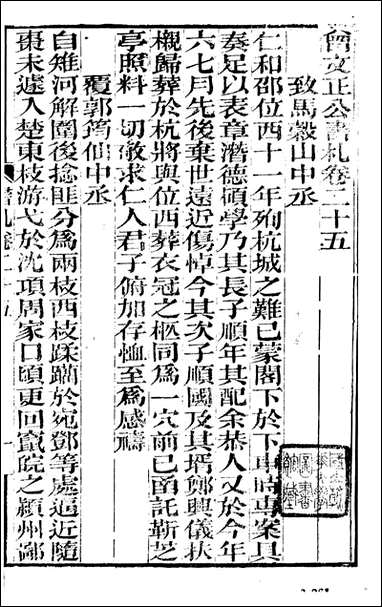 曾文正公書札卷二十五
致馬穀山中丞
仁和邵位西十一年殉杭城之難已蒙閣下於下車時專案具
奏足以表章潛德碩學乃其長子順年其配余恭人又於今年
六七月先後棄世遠近傷悼今其次子順國及其壻鄭興儀扶
櫬歸葬於杭將與位西葬衣冠之柩同爲一穴前已函託靳芝
亭照料一切敬求仁人君子俯加存恤至爲感禱
覆郭筠仙中丞
自雉河解圍後捻匪分爲兩枝西枝蹂躪於宛鄧等處逼近隨
棗未遽入楚東枝游弋於沈項周家口頃更回竄皖之潁州鄙
書札卷二十五